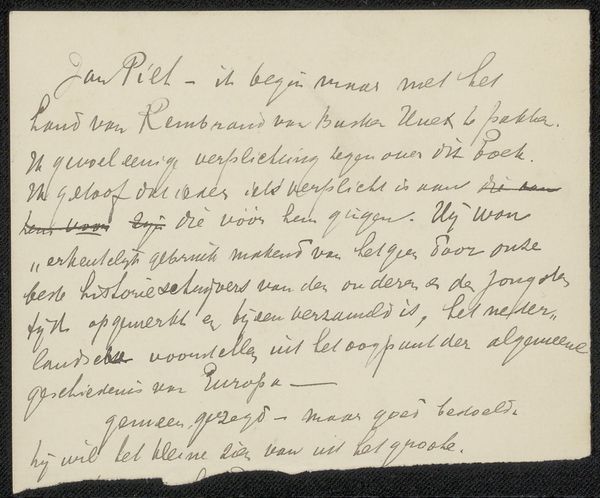 Jan Piet – ik begin maar met het
Land van Rembrand van Busken Huet te pakken.
Ik gevoel eenige verplichting tegenover dit boek.
Ik geloof dat ieder iets verplicht is aan die van
hen voor zijn die vóór hem gingen. Hij won
„erkentelijk gebruik makend van hetgeen door onze
beste historieschrijvers van den ouderen en den jongsten
tijd opgemerkt en bijeenverzameld is, het neder„
landsche voorstellen uit het oogpunt der algemeene
geschiedenis van Europa —
gemeen gezegd – maar goed bedoeld.
hij wil het kleine zien van uit het groote.